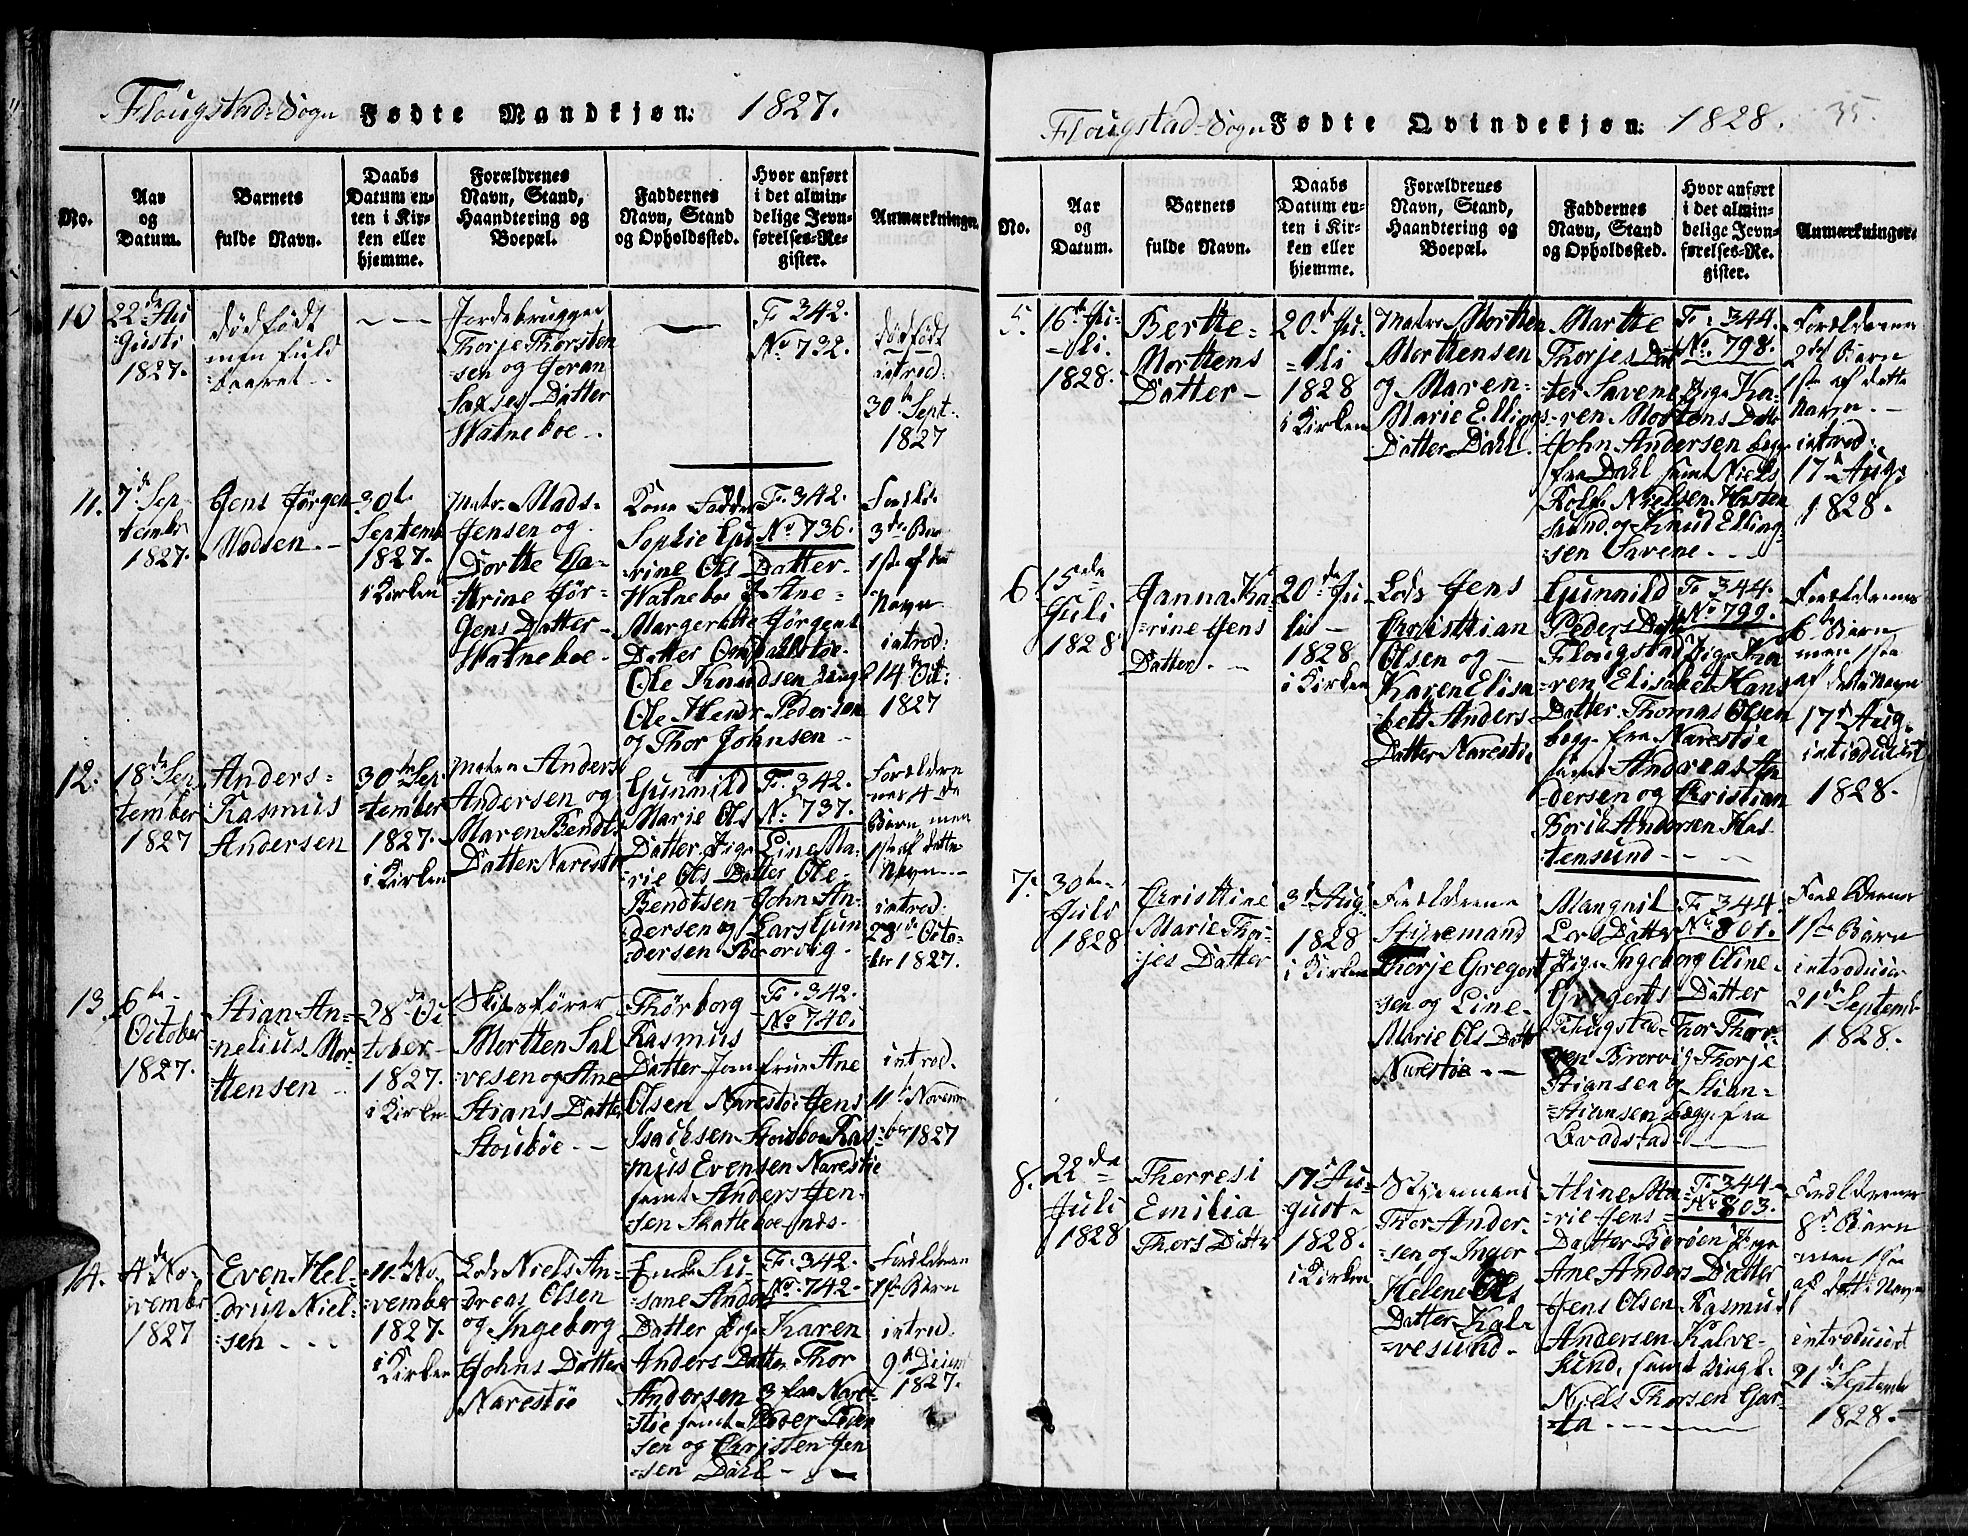 Flougstad-Sogn Fødte Mandkjøn: 1827.
No.
Aar
og
Datum.
Barnets
fulde Navn.
Daabs
Datum en-
ten i Kir-
ken eller
hjemme.
Forældrenes
Navn, Stand,
Haandtering og
Boepæl.
Faddernes
Navn, Stand
og Opholdssted.
Hvor anført
i det almin-
delige Jevn-
førelses-Re-
gister.
Anmærkninger.
10
22de Au
gusti
1827.
dødfødt
men fuld
baaret
Jordebrugger
Thorje Thorsten
sen og Joran
Saxses Datter
Watneboe
F. 342.
No 732.
dødfødt
introd:
30te Sept:
1827
11.
7de Sep
tembr
1827.
Jens Jørgen
Madsen
30te
Septemb
1827.
i Kirken
Matr. Mads
Jensen og
Dorthe Ca-
thrine Jør-
gens Datter
Watneboe
Kone
Sophie
rine Ols Datter
Watneboe P. Ane
Margerthe Jørgens
Datter
Ole Knudsen
Ole Hendr Pedersen
og Thor Johnsen
F. 342.
No 736.
3die Barn
1ste af det
Navn
introd:
14 Oct:
1827
12.
18de Sep
tember
1827
Anders
Rasmus
Andersen
30te Sep
tember
1827.
i Kirken
Matr. Anders
Andersen og
Maren Bendts
Datter Narestø
Gunnild
Marie Ols
Datter Pige Line Ma-
rie Ols Datter Ole
Bendtsen John An-
dersen og Lars Gun
dersen Borvig
F. 342.
No 737.
Foreldere
nes 4de
Barn men
1ste af dette
Navn
introd.
28de Octo-
ber 1827.
13.
6te
October
1827.
Stian An-
nelius Mor-
tensen
28de Oc
tober
1827.
i Kirken
Skibsfører
Morten Sal
vesen og Ane
Stians Datter
Stoubøe
Thørborg
Rasmus
Datter Jomfrue Ane
Olsen Narestøe Jens
Isacksen Stoubøe Ras
mus Evensen Narestøe
samt Anders Jen-
sen Skatteboe
F. 342.
No 740.
introd.
11te Novem
ber 1827
14.
4de No-
vember
1827
Even Hel-
drup Niel-
sen
11te No
vember
1827.
i Kirken
Lods Niels An-
dreas Olsen
og Ingeborg
Johns Datter
Narestøe
Enke Su-
sane Anders
Datter Pige Karen
Anders Datter Thor
Andersen 3 fra Nare-
støe samt Peder Peder
sen og Christen Jen
sen Dahl
F. 342.
No. 742.
Foreldrenes
1ste Barn
introd.
9de
1827.
Flougstad-Sogn Fødte Qvindekjøn: 1828. 35.
No.
Aar
og
Datum.
Barnets
fulde Navn.
Daabs
Datum en-
ten i Kir-
ken eller
hjemme.
Forældrenes
Navn, Stand,
Haandtering og
Boepæl.
Faddernes
Navn, Stand
og Opholdssted.
Hvor anført
i det almin-
delige Jevn-
førelses-Re-
gister.
Anmærkninger.
5.
16de Ju-
li.
1828.
Berthe
Mortens
Datter
20de Ju-
li
1828
i Kirken
Matr. Morten
Mortensen
og Maren
Marie Ellings
Datter Dahl
Marthe
Thorjes Dat
ter Savene Pige Ka-
ren Mortens Datt
John Andersen begge
fra Dahl samt Niels
Rolf Nielsen Hasten
sund og Knud Elling-
sen Savene
F. 344.
No 798.
Forelderenes
2det Barn
1ste af dette
Navn
introd:
17de Aug
1828.
6
15de
Juli
1828
Janna Ka-
rine Jens
Datter
20de Ju
li
1828
i Kirken
Lods Jens
Christian
Olsen og
Karen Elisa
beth Anders
Datter Narestøe
Gunnild
Peders Datt
Flougstad Pige Ka
ren Elisabet Hans
Datter Thomas Olsen
begge fra Narestøe
samt Andreas An
dersen og Christian
Borik Andersen Has-
tensund
F. 344.
No 799.
Forelderenes
6te Barn
men 1ste
af dette Navn
17de Aug
introducert
1828.
7.
30te
Juli
1828
Christine
Marie Thor-
jes Datter
3de Aug
1828
i Kirken
Forelderene
Styremand
Thorje Gregert
sen og Line
Marie Ols Datt
Narestøe
Magnil
Lars Datter
Pige Ingeborg Oline
Gregerts Datter
Flougstad Thor Thor-
sen Brorvig Thorje
Stiansen og Stian
Stiansen begge fra
F. 344.
No 801.
Forelderenes
1ste Barn
introducer
21de Septemb
1828.
8.
22de
Juli
1828
Therresi
Emilia
Thors Datter
17de Au-
gust
1828.
i Kirken
Styremand
Thor Ander-
sen og Inger
Helene Ols
Datter Kal-
vesund
Aline Ma-
rie Jens
Datter Borøen Pige
Ane Anders Datter
Jens Olsen Rasmus
Andersen Kalve-
sund, samt
Niels Thorsen Gar-
ta
F. 344.
No 803.
Forelderenes
8de Barn
men 1ste
af dette Navn
introducert
21de Septemb
1828.